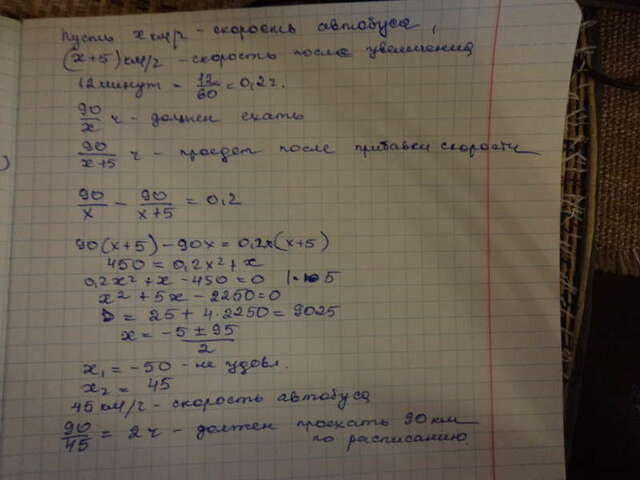 Пусть x км/ч - скорость автобуса,
(x+5) км/ч - скорость после увеличения
12 минут = 12/60 = 0,2 ч.
90/x ч - должен ехать
90/(x+5) ч - проедет после прибавки скорости
90/x - 90/(x+5) = 0,2
90(x+5) - 90x = 0,2x(x+5)
450 = 0,2x² + x
0,2x² + x - 450 = 0 | · 5
x² + 5x - 2250 = 0
D = 25 + 4·2250 = 9025
x = (-5 ± 95)/2
x₁ = -50 - не удовл.
x₂ = 45
45 км/ч - скорость автобуса
90/45 = 2 ч - должен проехать 90 км
по расписанию.